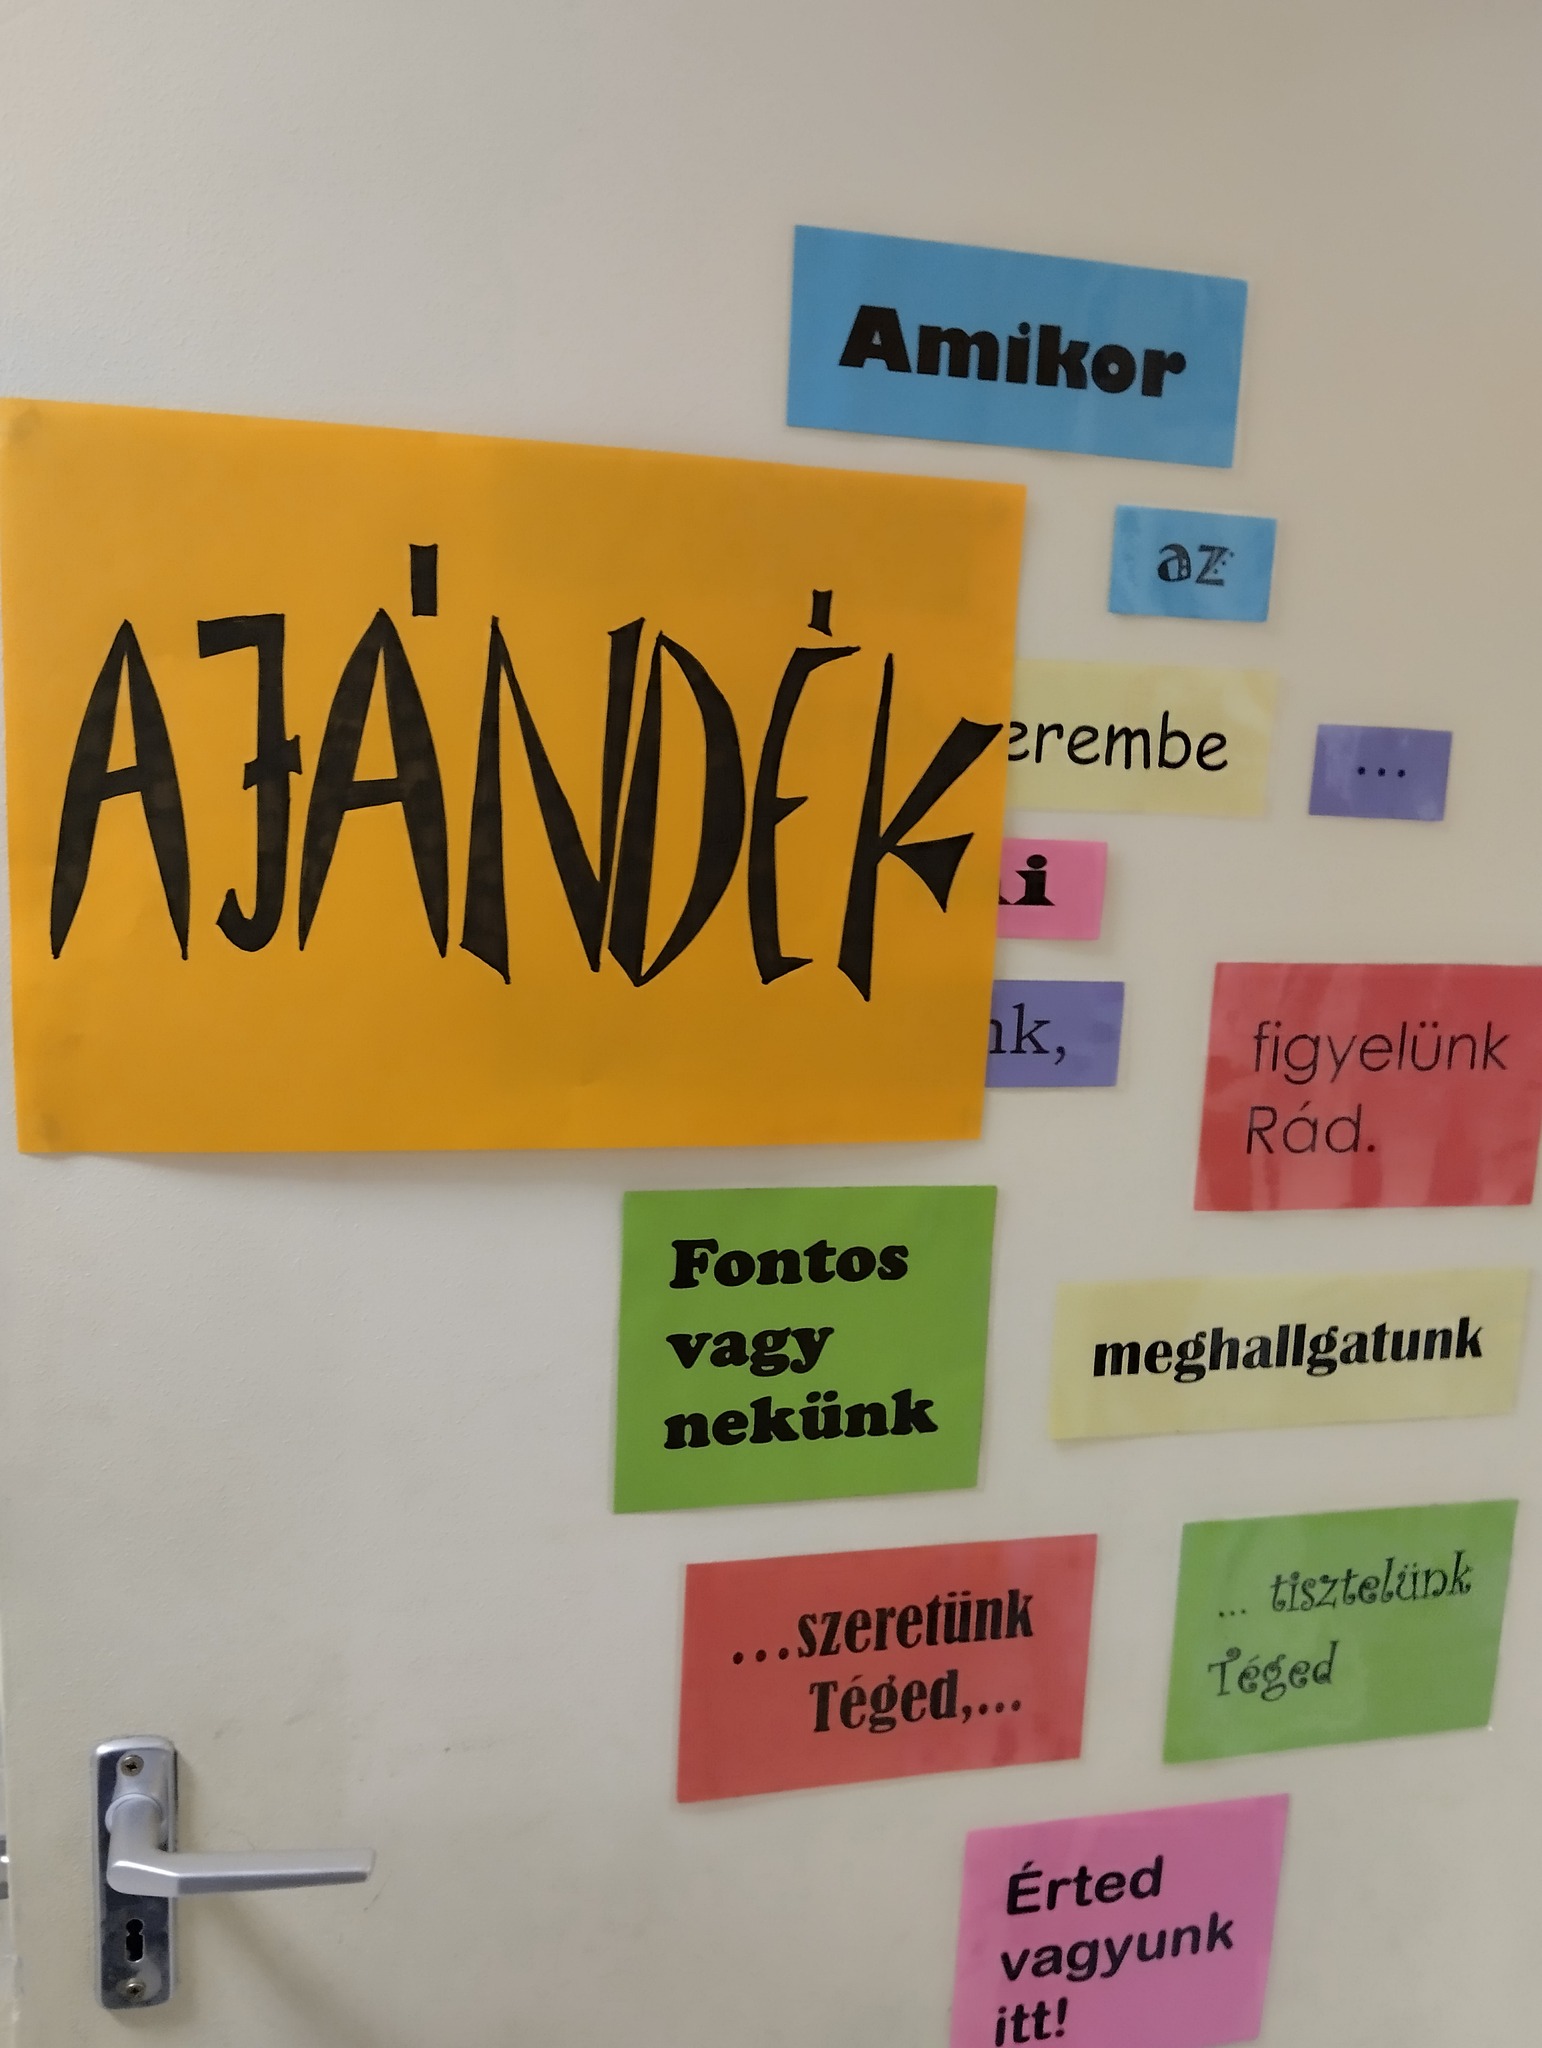 Amikor
az
AJÁNDÉK
erembe
...
i
nk,
figyelünk
Rád.
Fontos
vagy
nekünk
meghallgatunk
...szeretünk
Téged,...
... tisztelünk
Téged
Érted
vagyunk
itt!